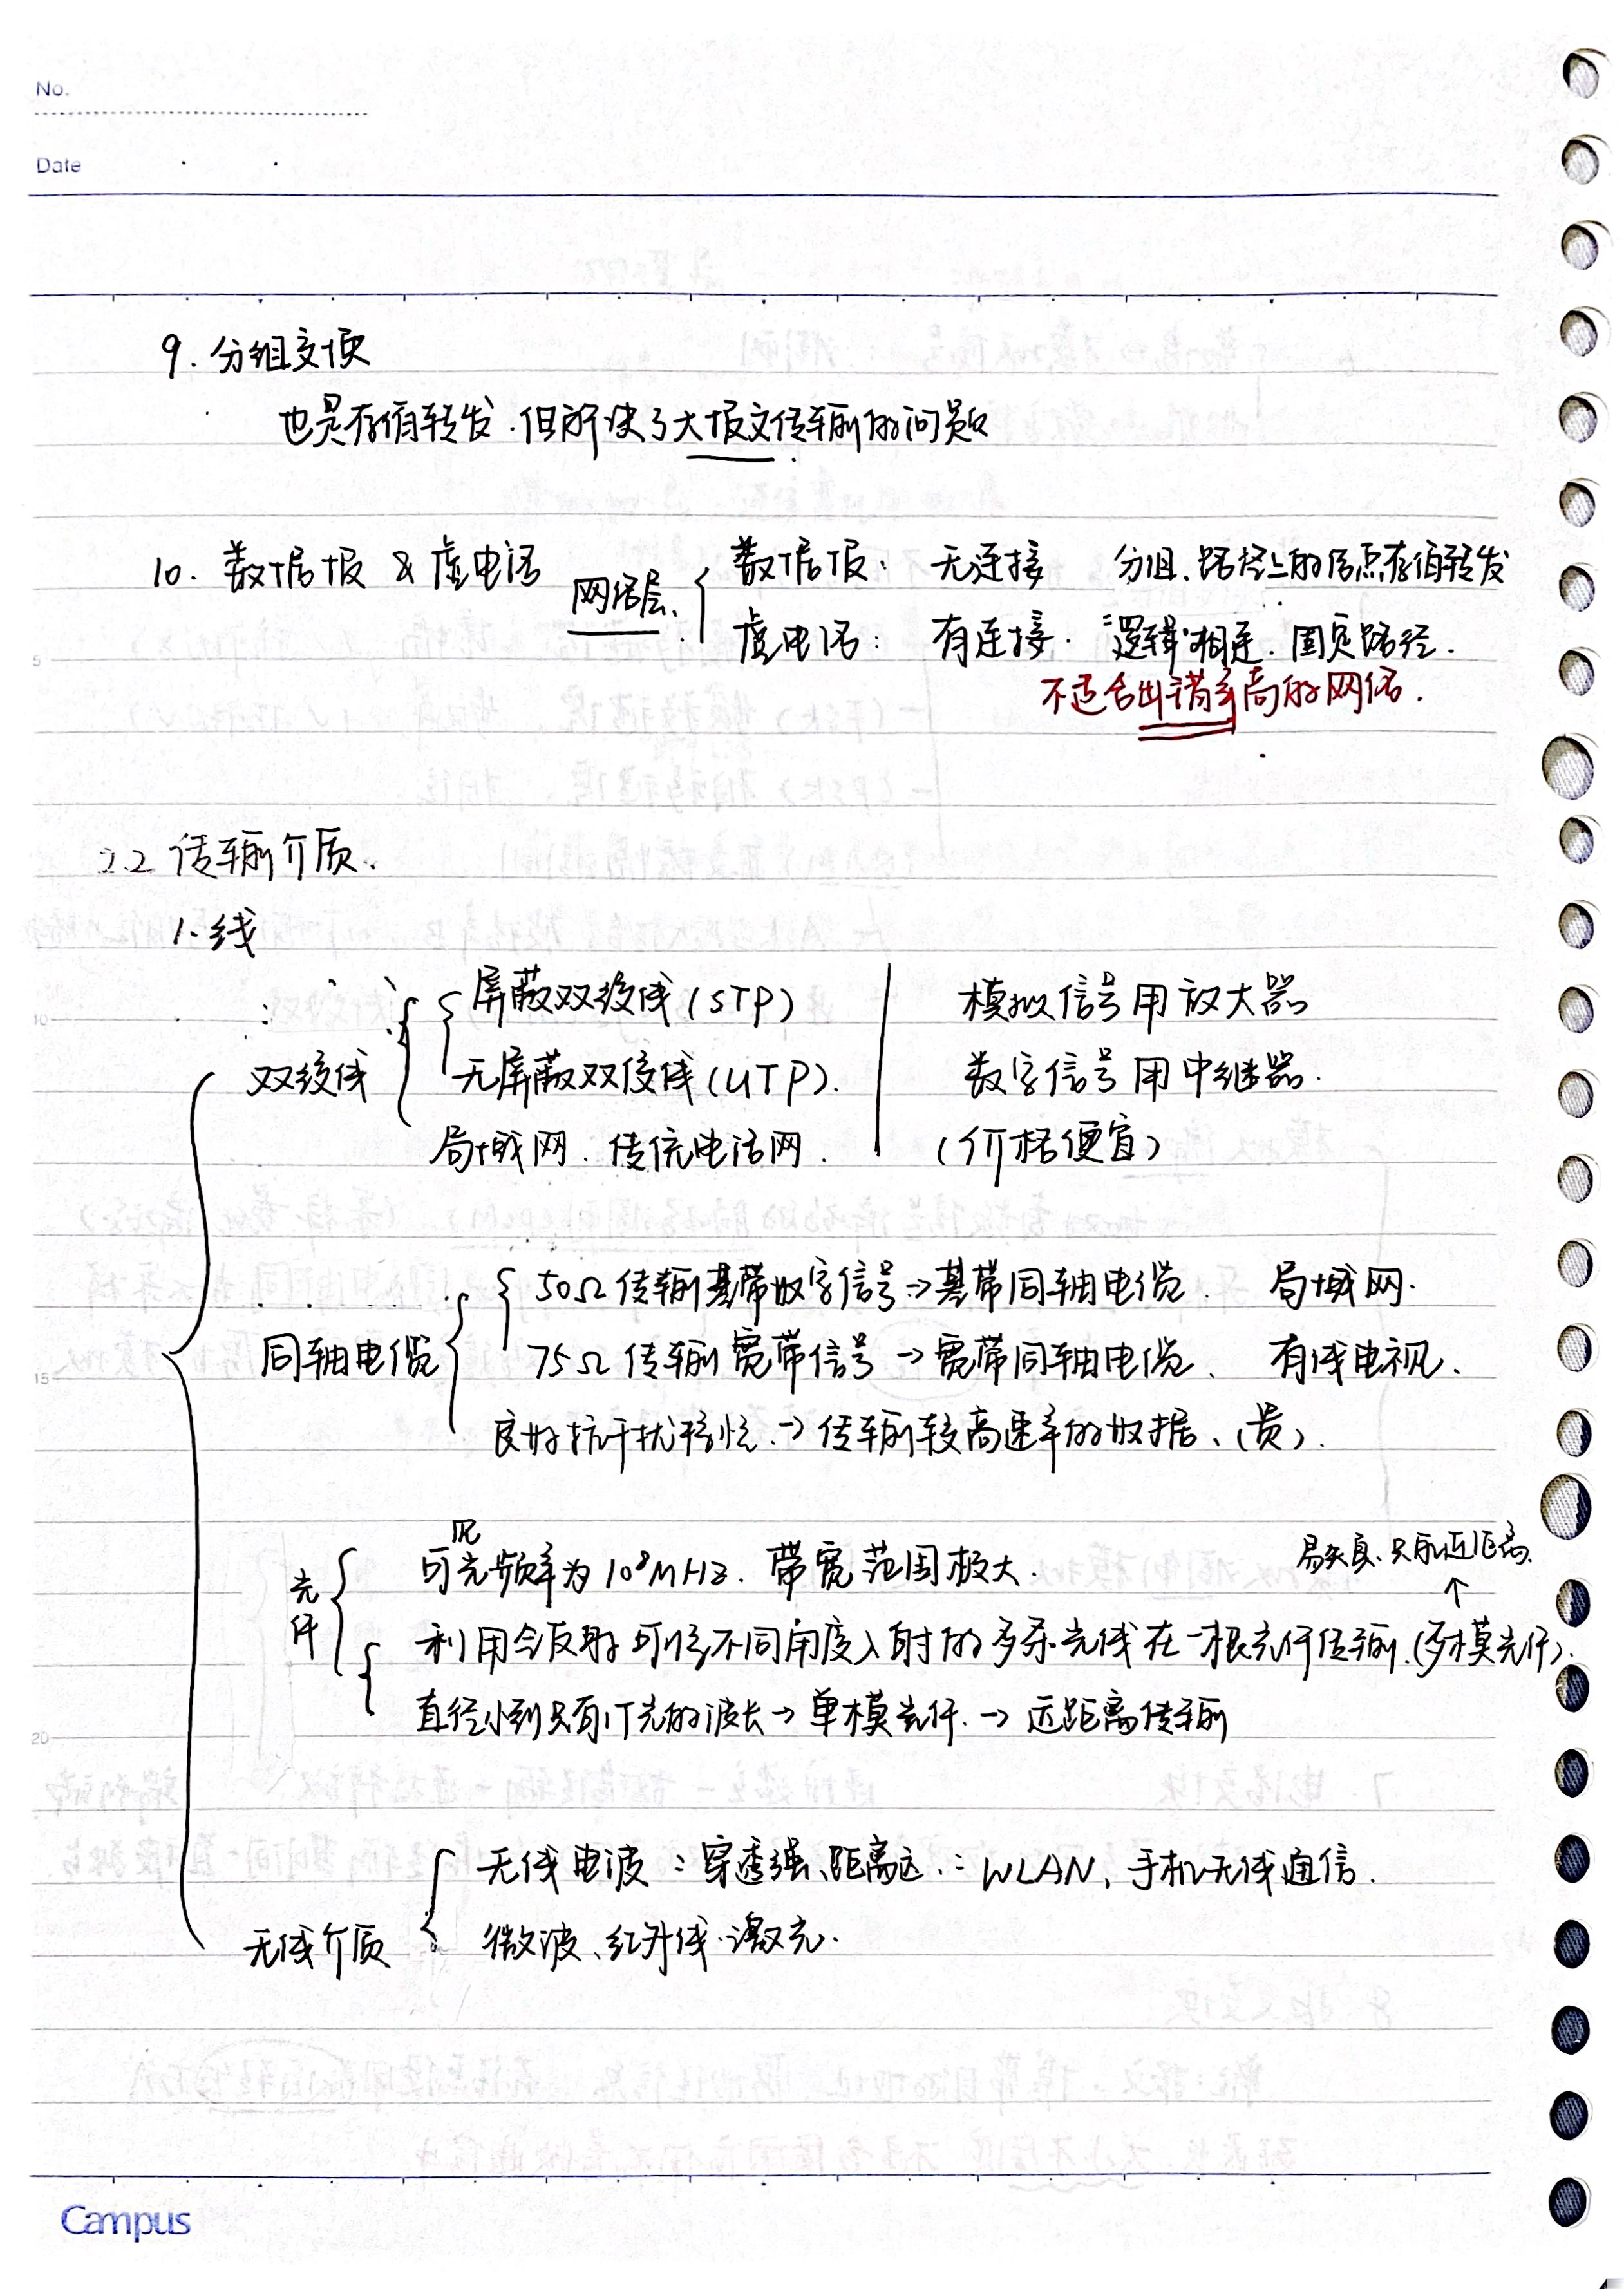 No.
Date
9. 分组交换
也是存储转发.但解决了大报文传输的问题
10. 数据报 & 虚电话 网络层. 数据报: 无连接 分组.路径上的结点存储转发
虚电话: 有连接. 逻辑相连. 固定路径.
不适合出错率高的网络.
2.2 传输介质.
1. 线
屏蔽双绞线(STP) 模拟信号用放大器
双绞线 无屏蔽双绞线(UTP). 数字信号用中继器.
局域网. 传统电话网. (价格便宜)
50Ω传输基带数字信号→基带同轴电缆. 局域网.
同轴电缆 75Ω传输宽带信号→宽带同轴电缆. 有线电视.
良好抗干扰特性.→传输较高速率的数据、(贵).
光纤 可见光频率为10⁸MHz. 带宽范围极大. 易失真.只能近距离.
利用全反射可将不同角度入射的多条光线在一根光纤传输.(多模光纤).
直径小到只有1个光的波长→单模光纤.→远距离传输
无线电波:穿透强、距离远.:WLAN、手机无线通信.
无线介质 微波、红外线.激光.
5
10
15
20
Campus